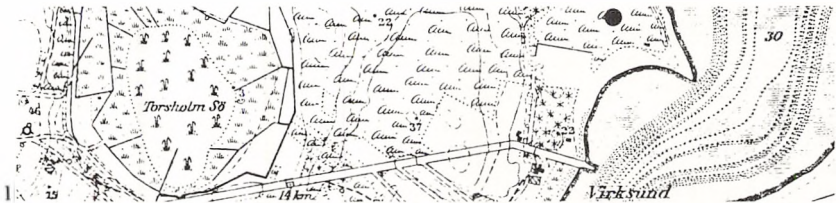 22
30
46
Torsholm Sö
37
22
14 km.
1
15
Virksund